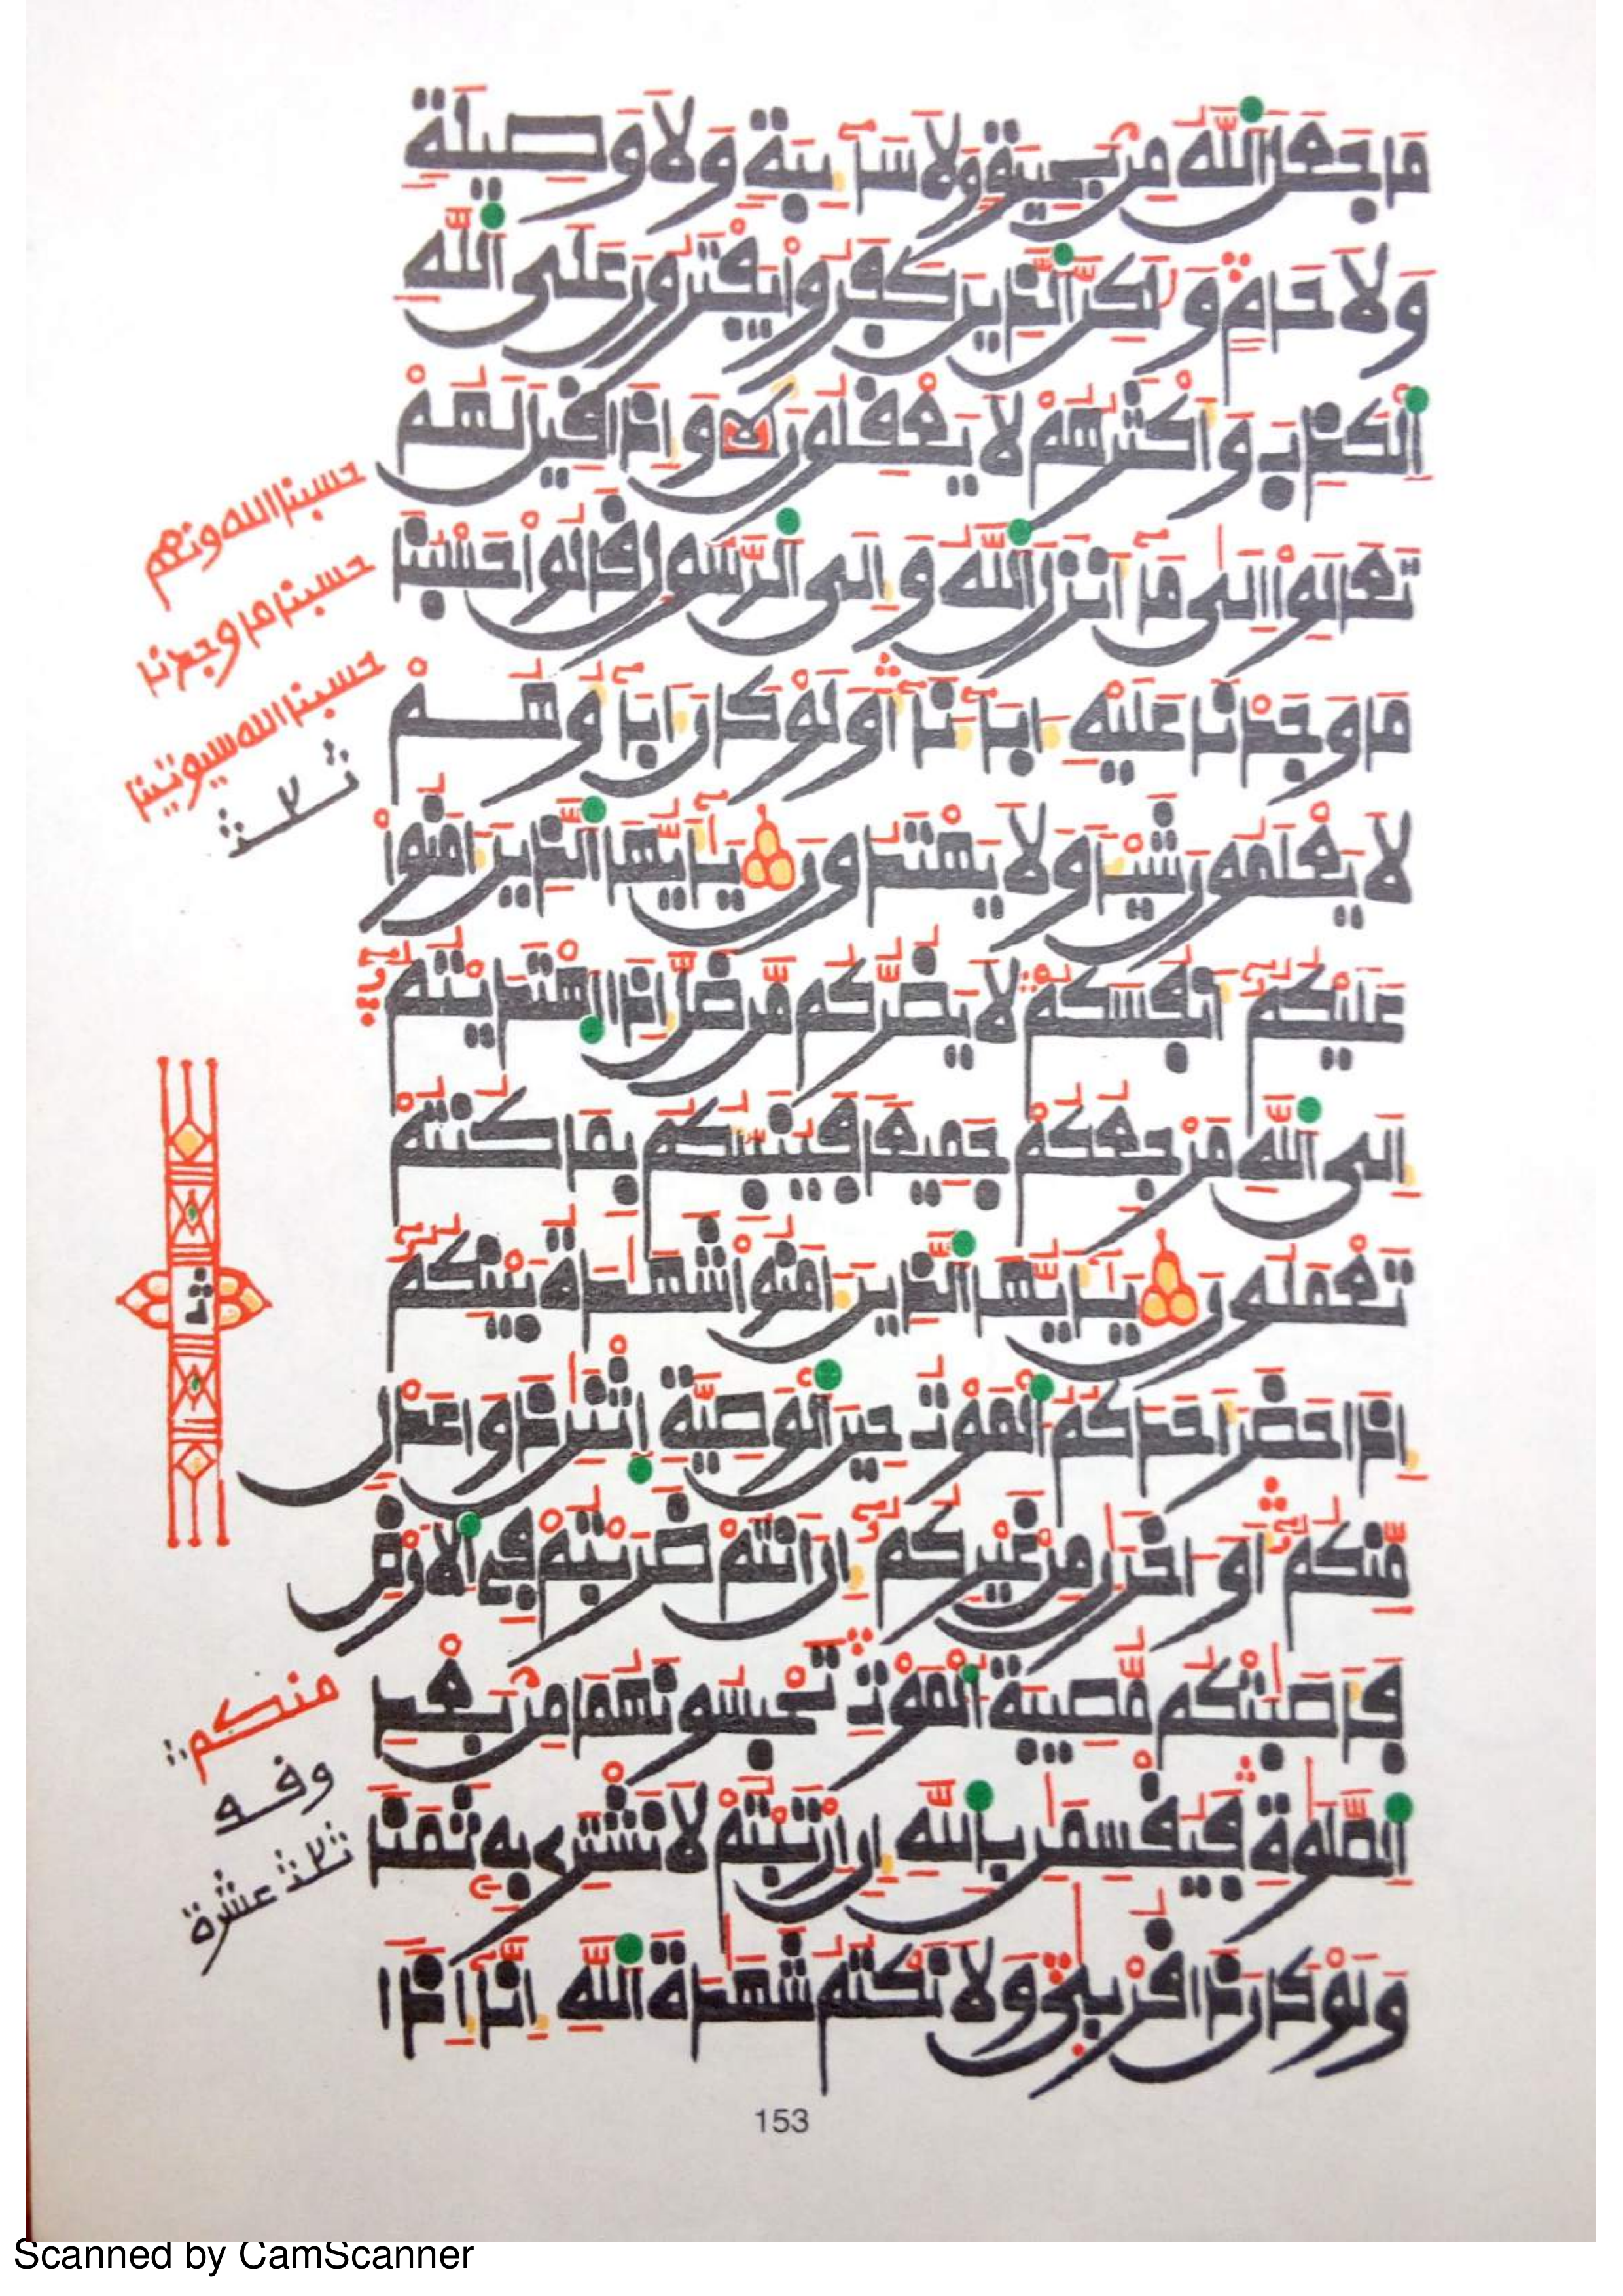 مَا جَعَلَ اَللَّهُ مِنۢ بَحِيرَةٖ وَلَا سَآئِبَةٖ وَلَا وَصِيلَةٖ
وَلَا حَامٖ وَلَٰكِنَّ اَلذِينَ كَفَرُواْ يَفْتَرُونَ عَلَى اَللَّهِ
اِ۬لْكَذِبَ وَأَكْثَرُهُمْ لَا يَعْقِلُونَ وَإِذَا قِيلَ لَهُمْ
تَعَالَوِاْ اِلَىٰ مَآ أَنزَلَ اَللَّهُ وَإِلَى اَلرَّسُولِ قَالُواْ حَسْبُنَا
مَا وَجَدْنَا عَلَيْهِ ءَابَآءَنَآ أَوَلَوْ كَانَ ءَابَآؤُهُمْ
لَا يَعْلَمُونَ شَيْـٔاٗ وَلَا يَهْتَدُونَ يَٰٓأَيُّهَا اَلذِينَ ءَامَنُواْ
عَلَيْكُمُۥٓ أَنفُسَكُمْ لَا يَضُرُّكُم مَّن ضَلَّ إِذَا اَهْتَدَيْتُمُۥٓ
إِلَى اَللَّهِ مَرْجِعُكُمْ جَمِيعاٗ فَيُنَبِّئُكُم بِمَا كُنتُمْ
تَعْمَلُونَ يَٰٓأَيُّهَا اَلذِينَ ءَامَنُواْ شَهَٰدَةُ بَيْنِكُمُۥٓ
إِذَا حَضَرَ أَحَدَكُمُ اَلْمَوْتُ حِينَ اَلْوَصِيَّةِ اِ۪ثْنَٰنِ ذَوَا عَدْلٖ
مِّنكُمُۥٓ أَوَ اٰخَرَٰنِ مِنْ غَيْرِكُمُۥٓ إِنَ اَنتُمْ ضَرَبْتُمْ فِي اِ۬لَارْضِ
فَأَصَٰبَتْكُم مُّصِيبَةُ اَلْمَوْتِ تَحْبِسُونَهُمَا مِنۢ بَعْدِ
اِ۬لصَّلَوٰةِ فَيُقْسِمَٰنِ بِاللَّهِ إِنِ اِرْتَبْتُمْ لَا نَشْتَرِي بِهِۦ ثَمَناٗ
وَلَوْ كَانَ ذَا قُرْبَىٰ وَلَا نَكْتُمُ شَهَٰدَةَ اَللَّهِ إِنَّآ إِذاٗ
حسبنا الله ونعم
حسبنا ما وجدنا
حسبنا الله سيوتينا
منكم
وفه
عشرة
153
Scanned by CamScanner